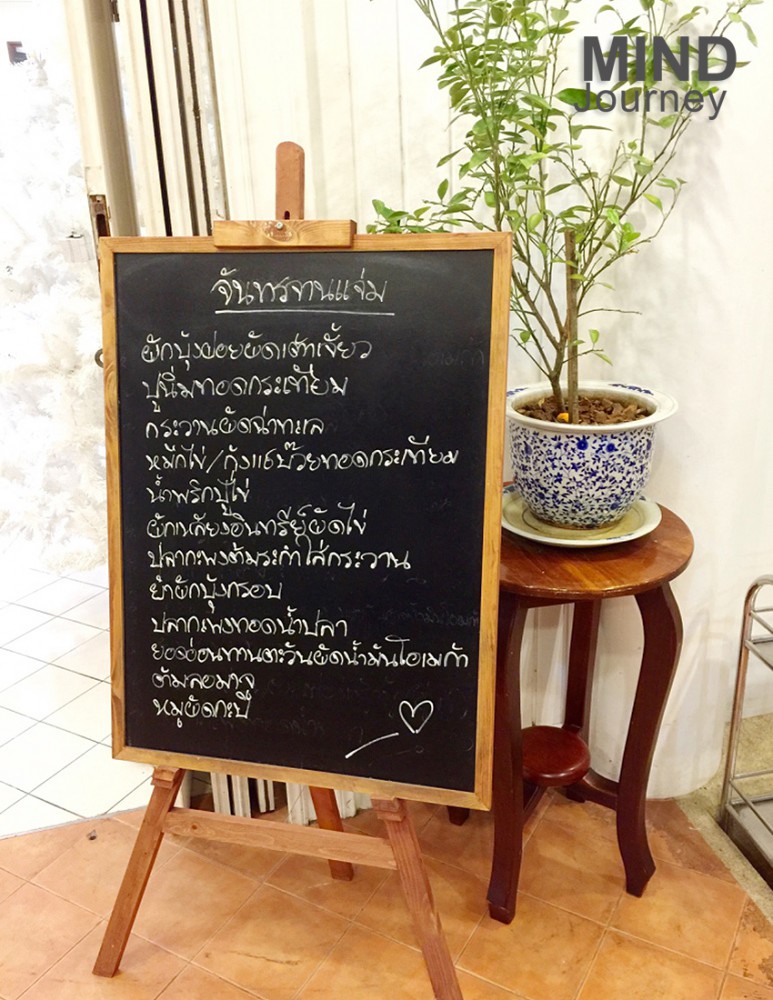 MIND
Journey
จันทรจานแจ่ม
ผักบุ้งฝอยผัดเต้าเจี้ยว
ปูนิ่มทอดกระเทียม
กระวานผัดฉ่าทะเล
หมึกไข่/กุ้งแช่บ๊วยทอดกระเทียม
น้ำพริกปูไข่
ผักเหลียงอินทรีย์ผัดไข่
ปลากะพงต้มระกำใส่กระวาน
ยำผักบุ้งกรอบ
ปลากะพงทอดน้ำปลา
ยอดอ่อนทานตะวันผัดน้ำมันโอเมก้า
ต้มสอมาจู
หมูผัดกะปิ